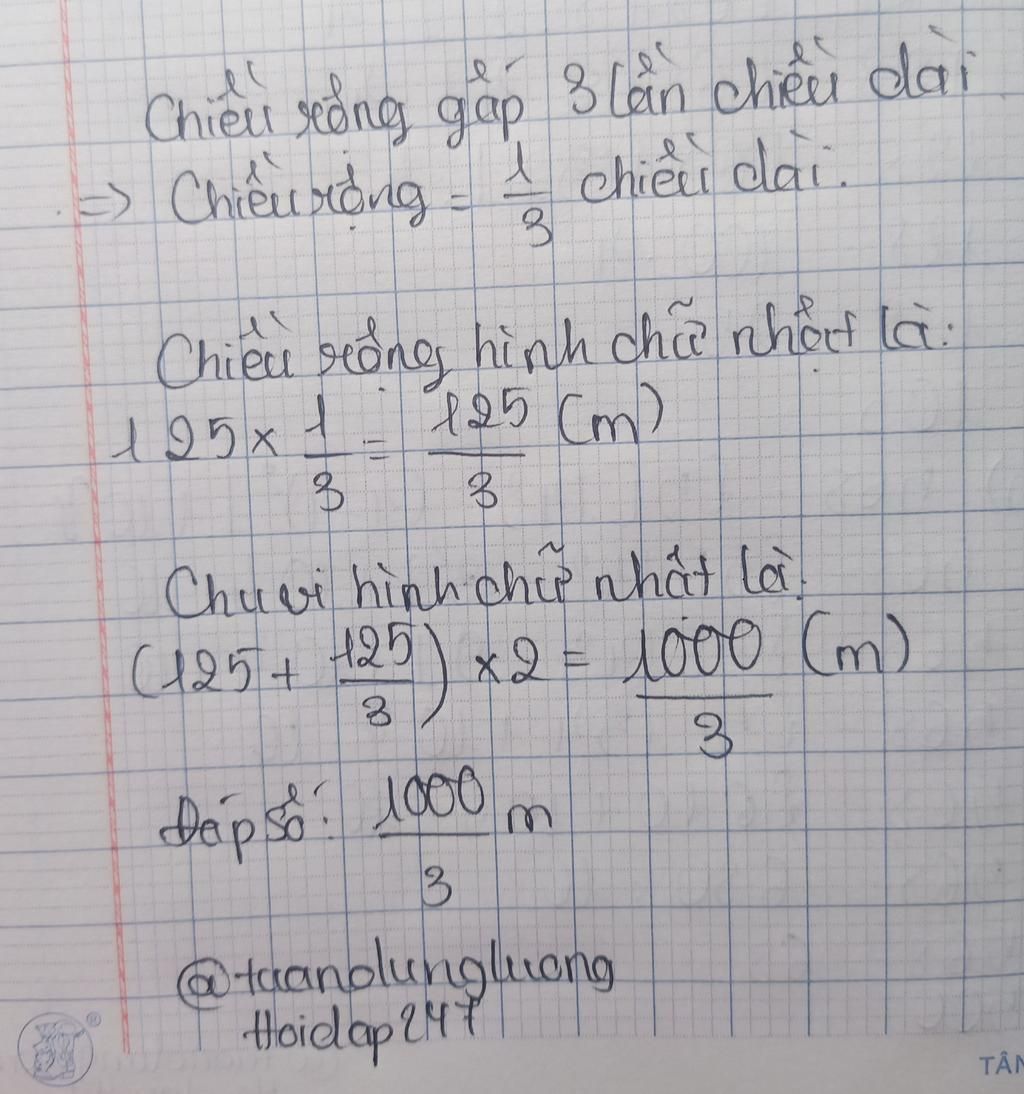 Chiều rộng gấp 3 lần chiều dài
=> Chiều rộng = 1/3 chiều dài.
Chiều rộng hình chữ nhật là:
125 × 1/3 = 125/3 (m)
Chu vi hình chữ nhật là:
(125 + 125/3) × 2 = 1000/3 (m)
Đáp số: 1000/3 m
@tuandungluong
Hoidap247
®
TÂN